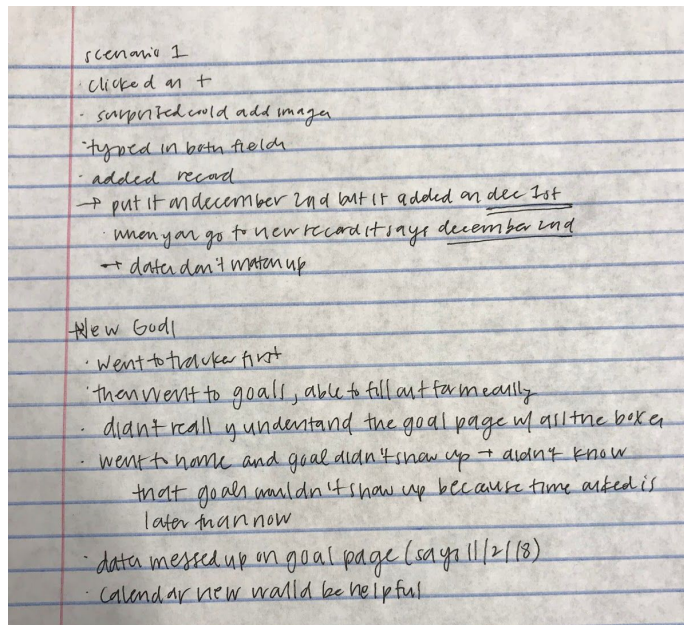 scenario 1
· clicked on +
· surprised could add images
· typed in both fields
· added record
→ put it on december 2nd but it added on dec 1st
· when you go to new record it says december 2nd
→ dates don't match up
New Goal
· went to tracker first
· then went to goals, able to fill out form easily
· didn't really understand the goal page w/ all the boxes
· went to home and goal didn't show up → didn't know
that goals wouldn't show up because time asked is
later than now
· dates messed up on goal page (says 11/2/18)
· calendar view would be helpful